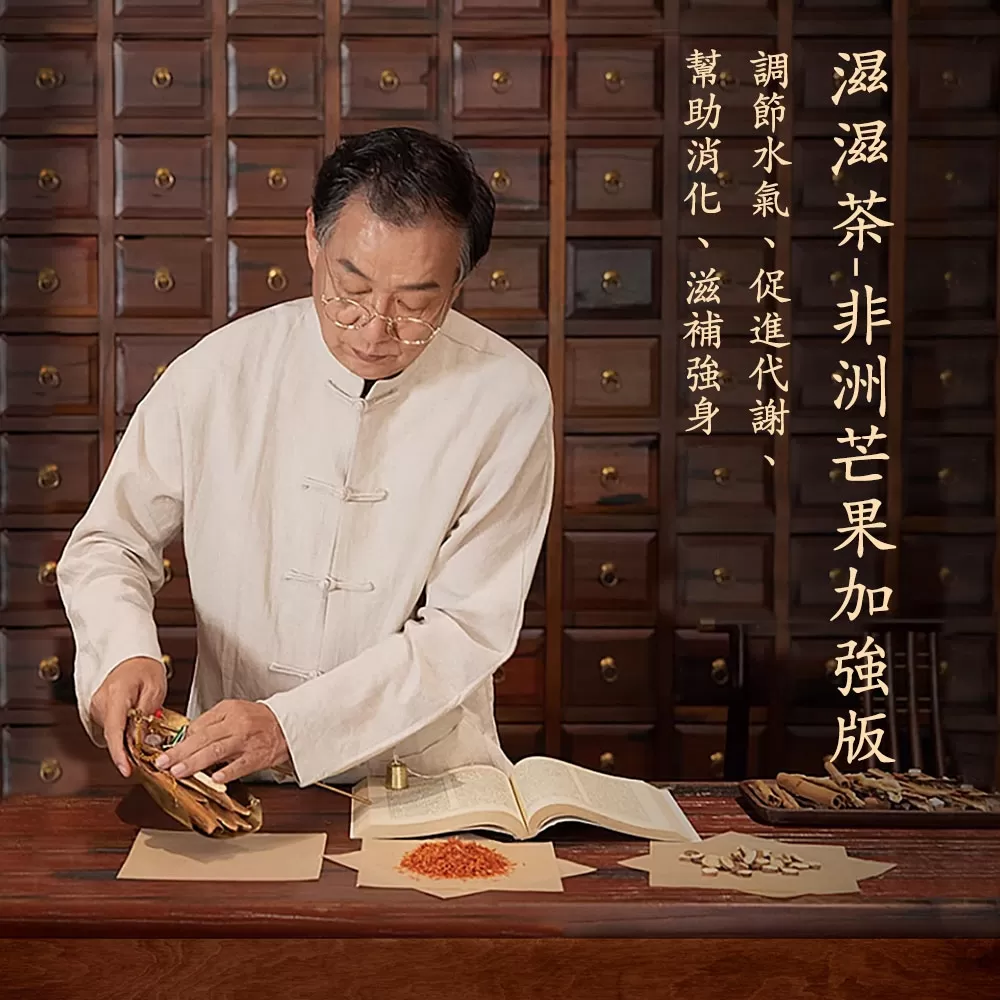 滋滋茶-非洲芒果加強版
調節水氣、促進代謝、
幫助消化、滋補強身